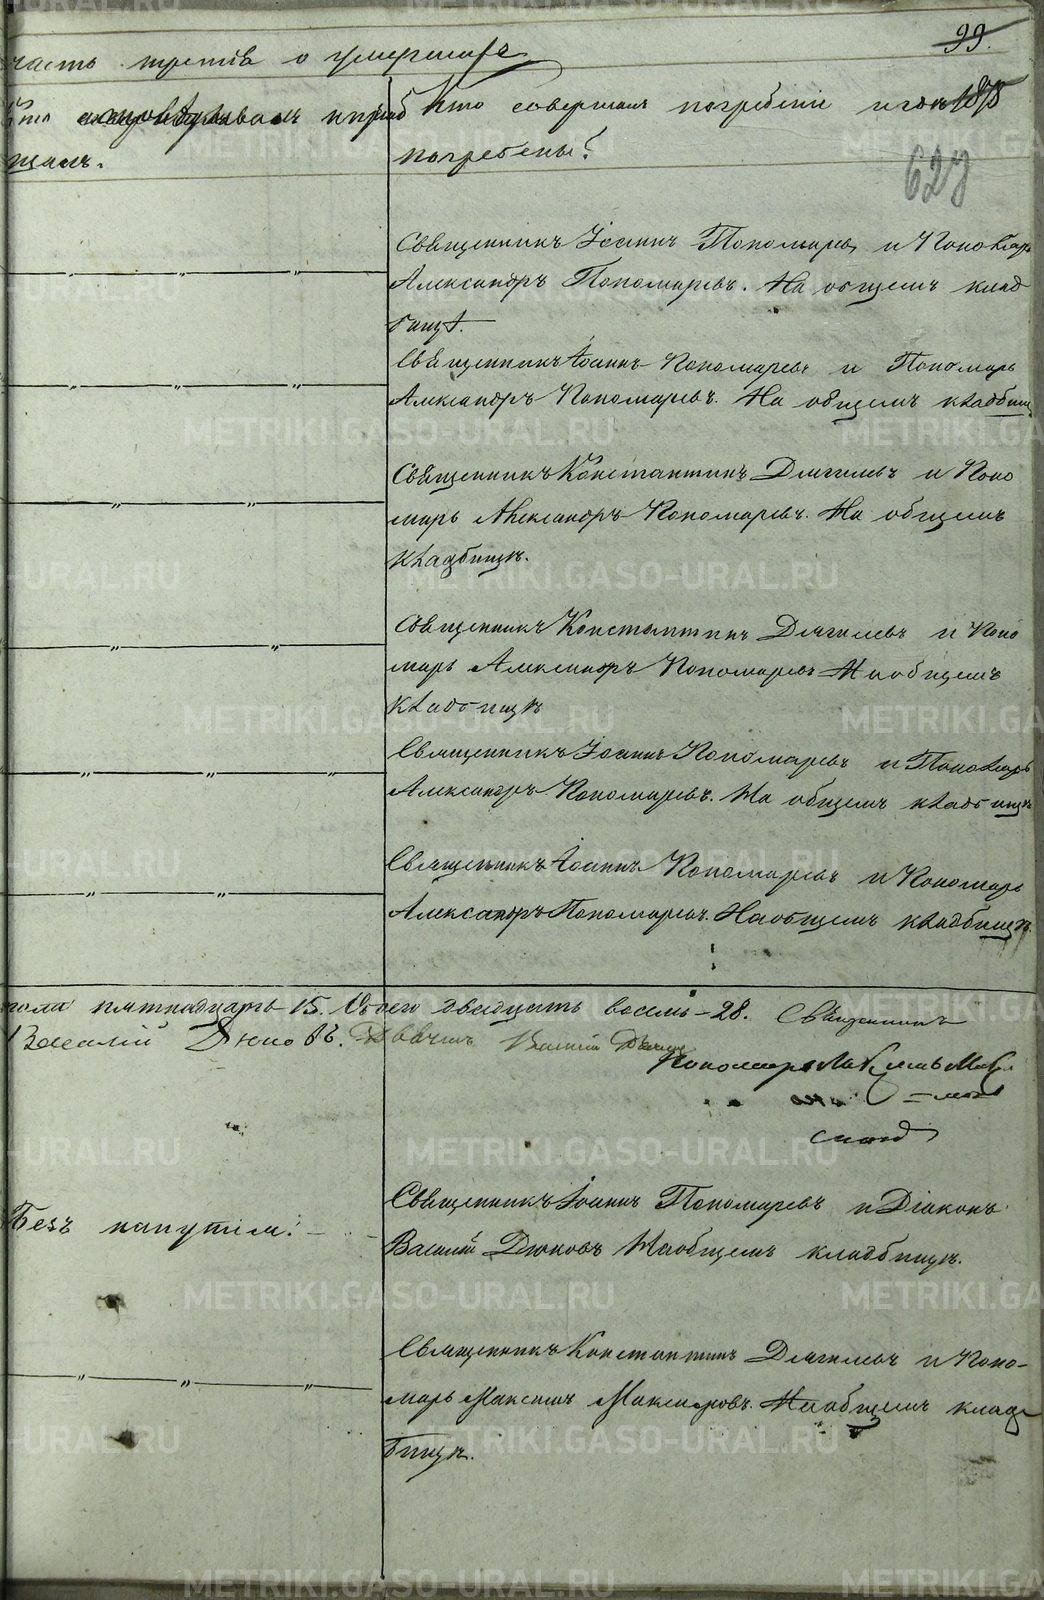 99.
часть третія о умершихъ
Кто исповѣдывалъ и пріоб
щалъ.
Кто совершалъ погребеніе и гдѣ
погребены?
627
Священникъ Іоаннъ Пономаревъ и Пономарь
Александръ Пономаревъ. На общемъ клад
бищѣ.
Священникъ Іоаннъ Пономаревъ и Пономарь
Александръ Пономаревъ. На общемъ кладбищ
Священникъ Константинъ Дягилевъ и Поно
марь Александръ Пономаревъ. На общемъ
кладбищѣ.
Священникъ Константинъ Дягилевъ и Поно
марь Александръ Пономаревъ На общемъ
кладбищѣ
Священникъ Іоаннъ Пономаревъ и Пономарь
Александръ Пономаревъ. На общемъ кладбищѣ
Священникъ Іоаннъ Пономаревъ и Пономарь
Александръ Пономаревъ. На общемъ кладбищѣ.
пола пятнадцать 15. Обоего двадцать восемь 28. Священникъ
Василій Дюковъ. Василій
Пономарь
Безъ напутія.
Священникъ Іоаннъ Пономаревъ и Діаконъ
Василій Дюковъ На общемъ кладбищѣ.
Священникъ Константинъ Дягилевъ и Поно-
марь Максимъ Максимовъ. На общемъ клад-
бищѣ.
METRIKI.GASO-URAL.RU